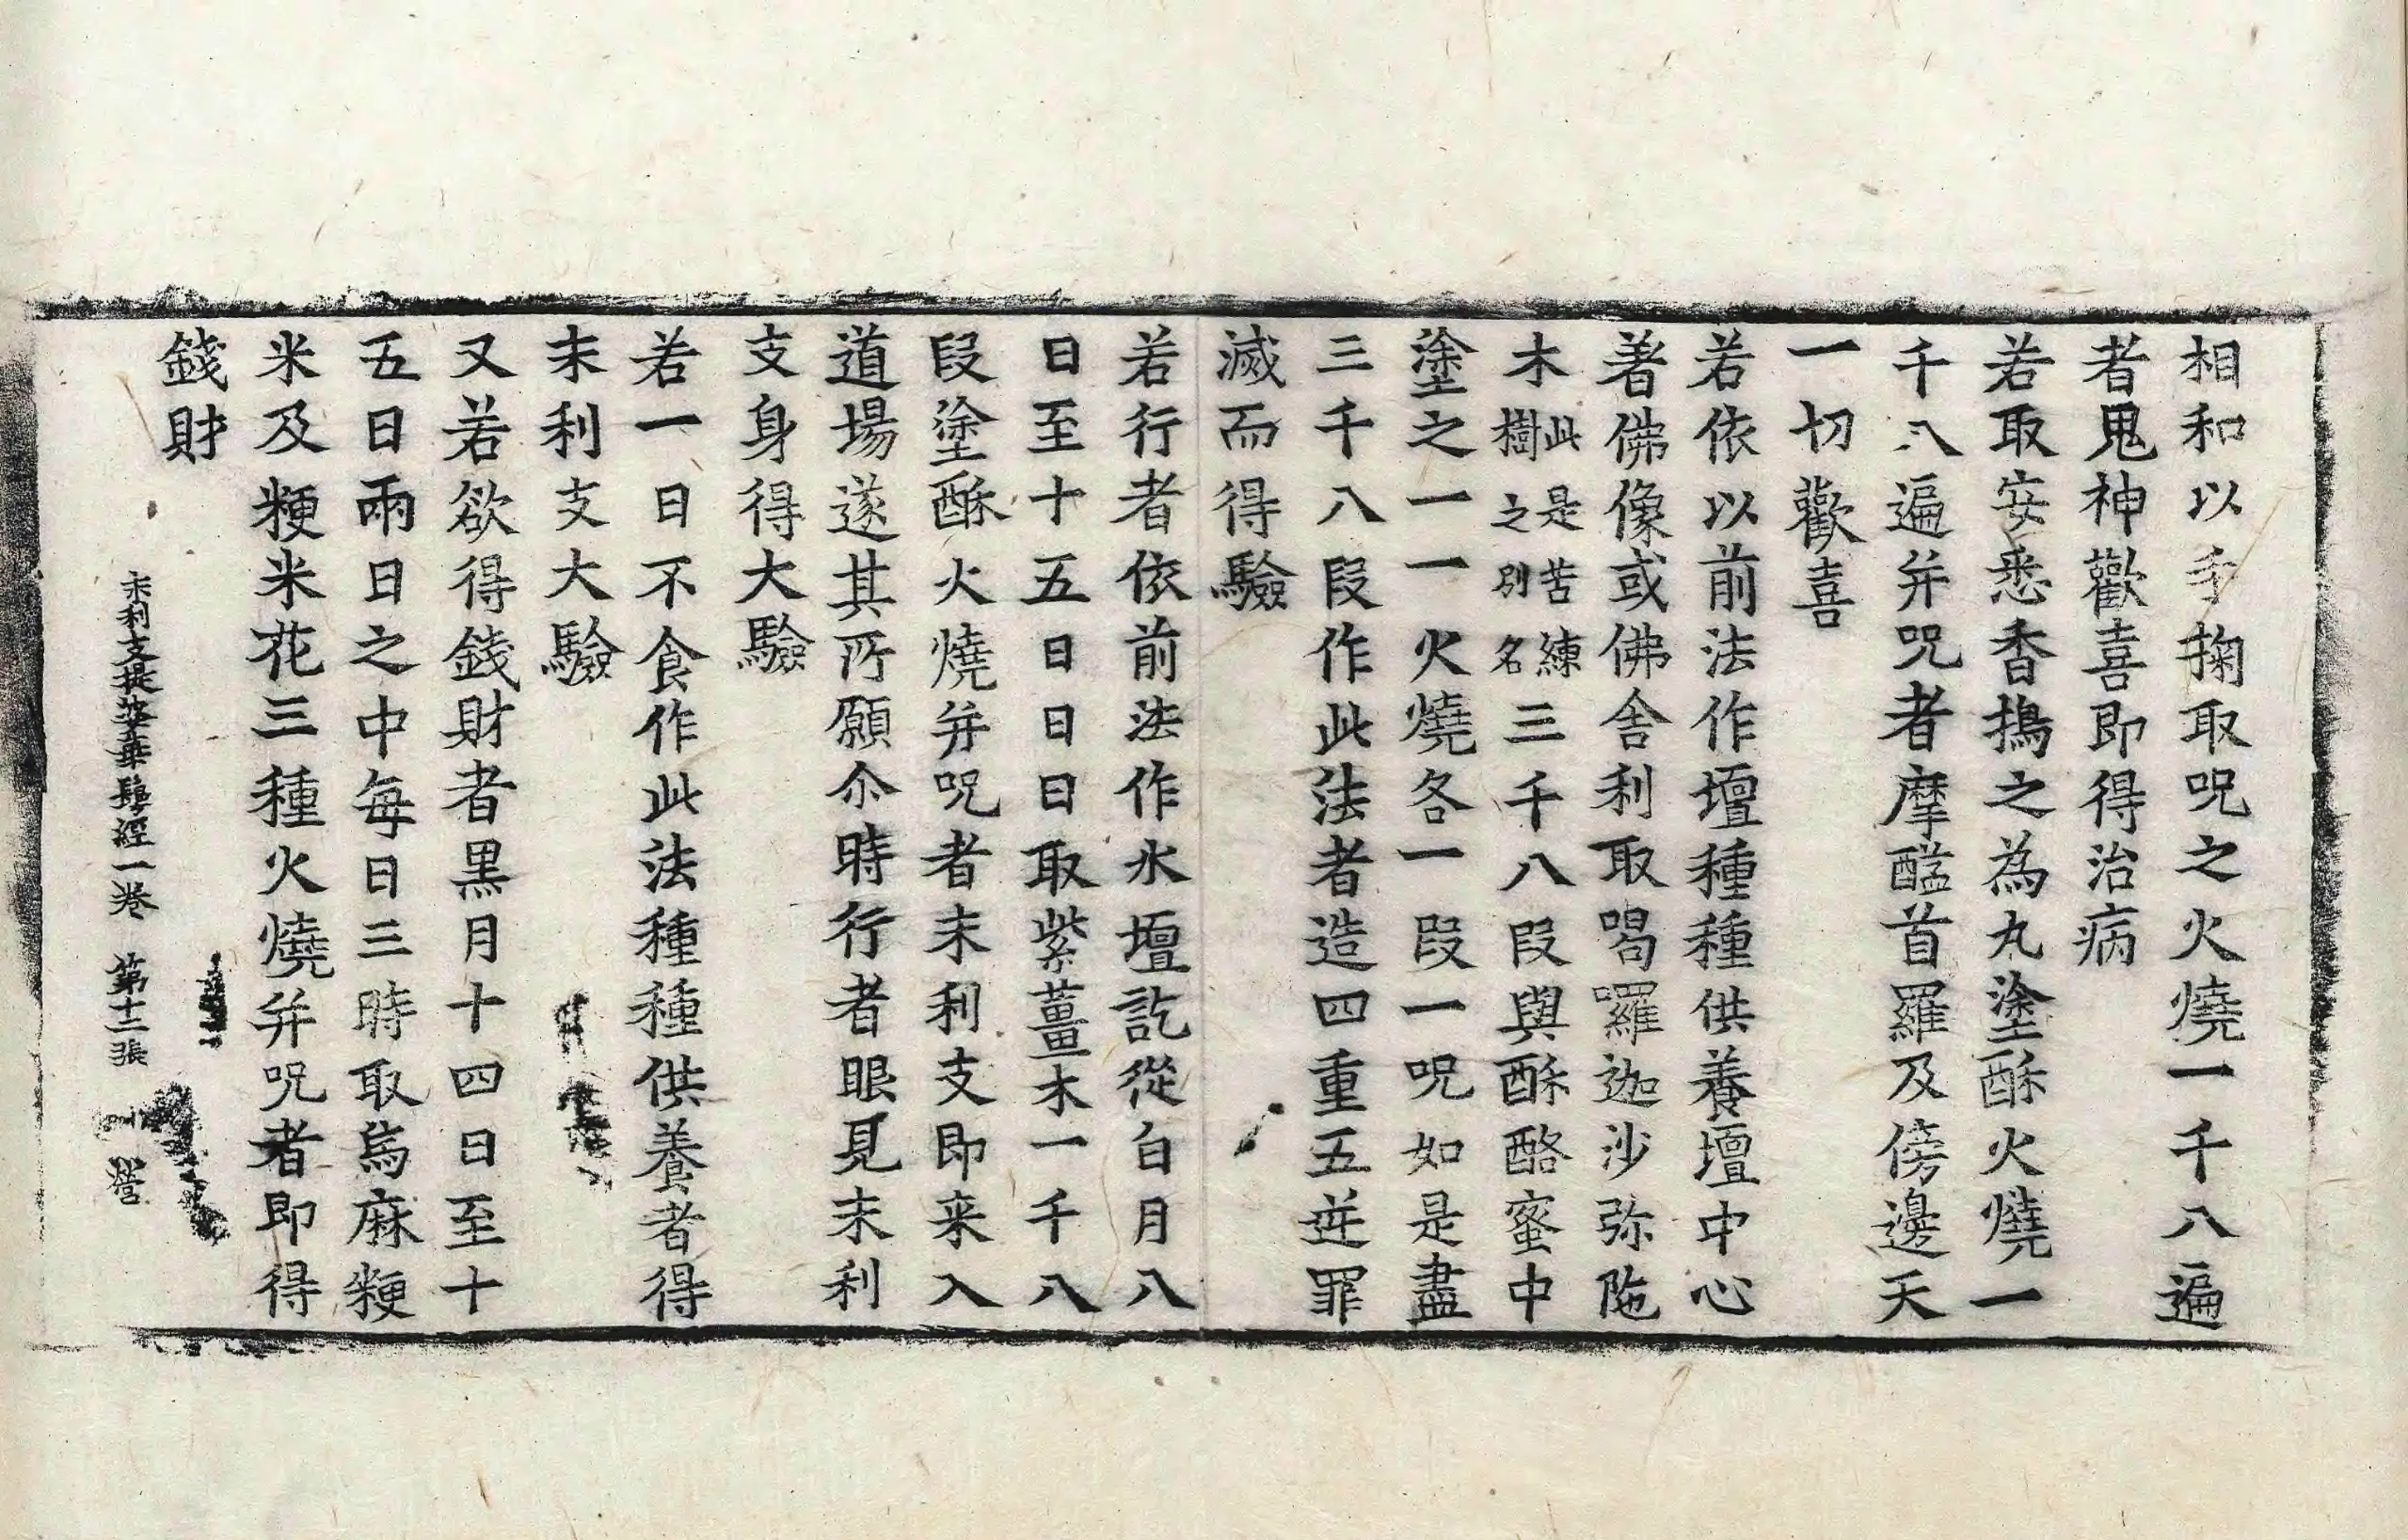 相和以手掬取呪之火燒一千八遍
者鬼神歡喜即得治病
若取安悉香擣之為丸塗酥火燒一
千八遍并呪者摩醯首羅及傍邊天
一切歡喜
若依以前法作壇種種供養壇中心
著佛像或佛舍利取喝囉迦沙弥陁
木此是苦練樹之別名三千八段與酥酪蜜中
塗之一一火燒各一段一呪如是盡
三千八段作此法者造四重五逆罪
滅而得驗
若行者依前法作水壇訖從白月八
日至十五日日日取紫薑木一千八
段塗酥火燒并呪者末利支即来入
道場遂其所願尒時行者眼見末利
支身得大驗
若一日不食作此法種種供養者得
末利支大驗
又若欲得錢財者黑月十四日至十
五日兩日之中每日三時取烏麻粳
米及粳米花三種火燒并呪者即得
錢財
末利支提婆華鬘經一卷 第十二張 營